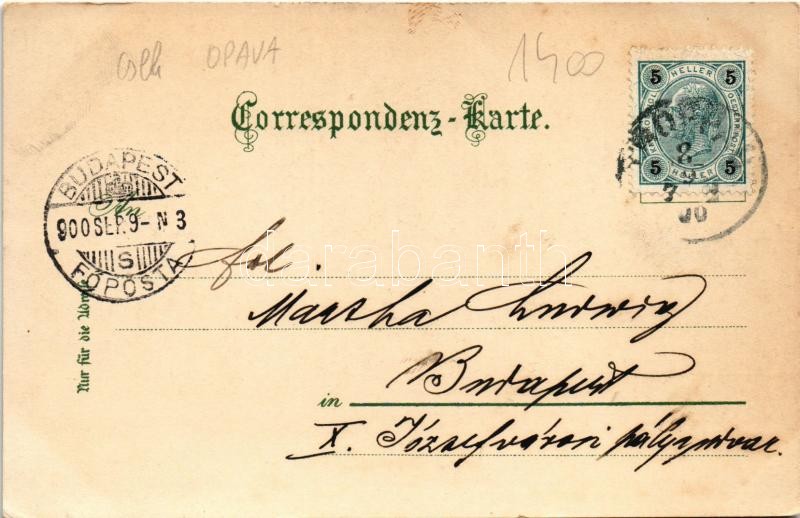 cslh OPAVA
1400
5 HELLER 5
5 HELLER 5
Correspondenz-Karte.
BUDAPEST
An
900 SEP. 9 - N 3
S
FŐPOSTA
8
9
00
darabanth
frl.
Martha Ludwig
Budapest
in
X. Józsefvárosi pályaudvar.
Nur für die Adresse